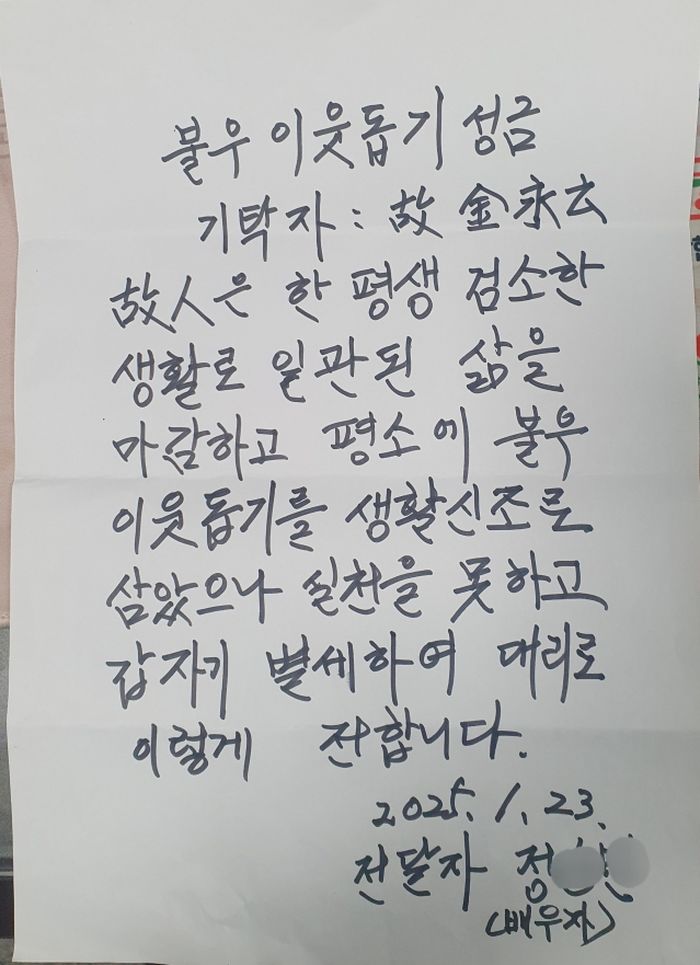 불우 이웃돕기 성금
기탁자 : 故 金永云
故人은 한 평생 검소한
생활로 일관된 삶을
마감하고 평소에 불우
이웃돕기를 생활신조로
삼았으나 실천을 못하고
갑자기 별세하여 대리로
이렇게 전합니다.
2025. 1. 23.
전달자 정
(배우자)